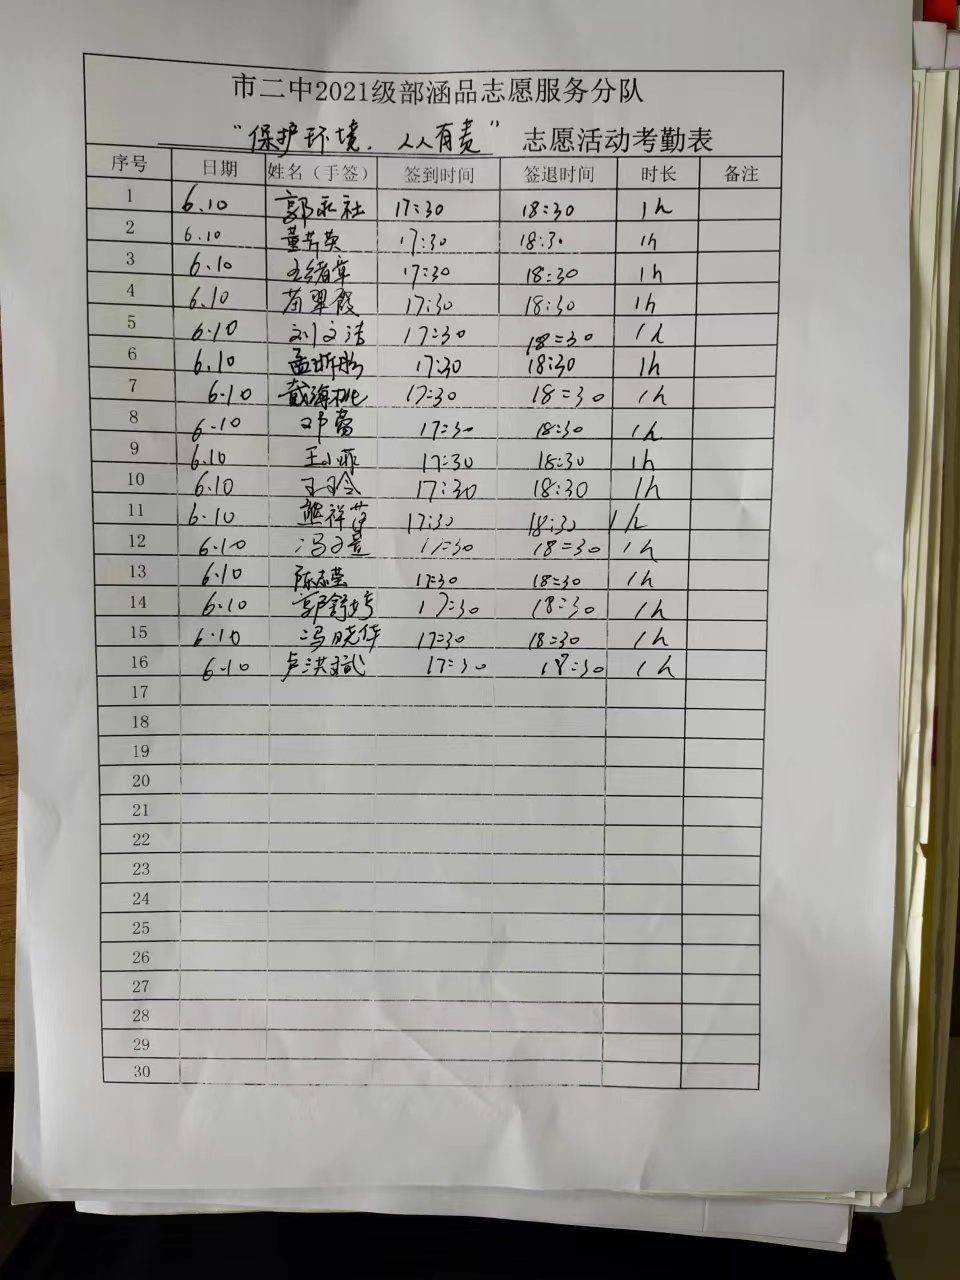 市二中2021级部涵品志愿服务分队
“保护环境，人人有责” 志愿活动考勤表
序号 日期 姓名（手签） 签到时间 签退时间 时长 备注
1 6.10 郭永社 17:30 18:30 1h
2 6.10 董芳英 17:30 18:30 1h
3 6.10 王绪章 17:30 18:30 1h
4 6.10 苗翠霞 17:30 18:30 1h
5 6.10 刘文洁 17:30 18:30 1h
6 6.10 17:30 18:30 1h
7 6.10 戴海桃 17:30 18:30 1h
8 6.10 邓蕾 17:30 18:30 1h
9 6.10 王小菲 17:30 18:30 1h
10 6.10 17:30 18:30 1h
11 6.10 熊祥萍 17:30 18:30 1h
12 6.10 17:30 18:30 1h
13 6.10 陈志莹 17:30 18:30 1h
14 6.10 17:30 18:30 1h
15 6.10 冯晓华 17:30 18:30 1h
16 6.10 卢洪斌 17:30 18:30 1h
17
18
19
20
21
22
23
24
25
26
27
28
29
30